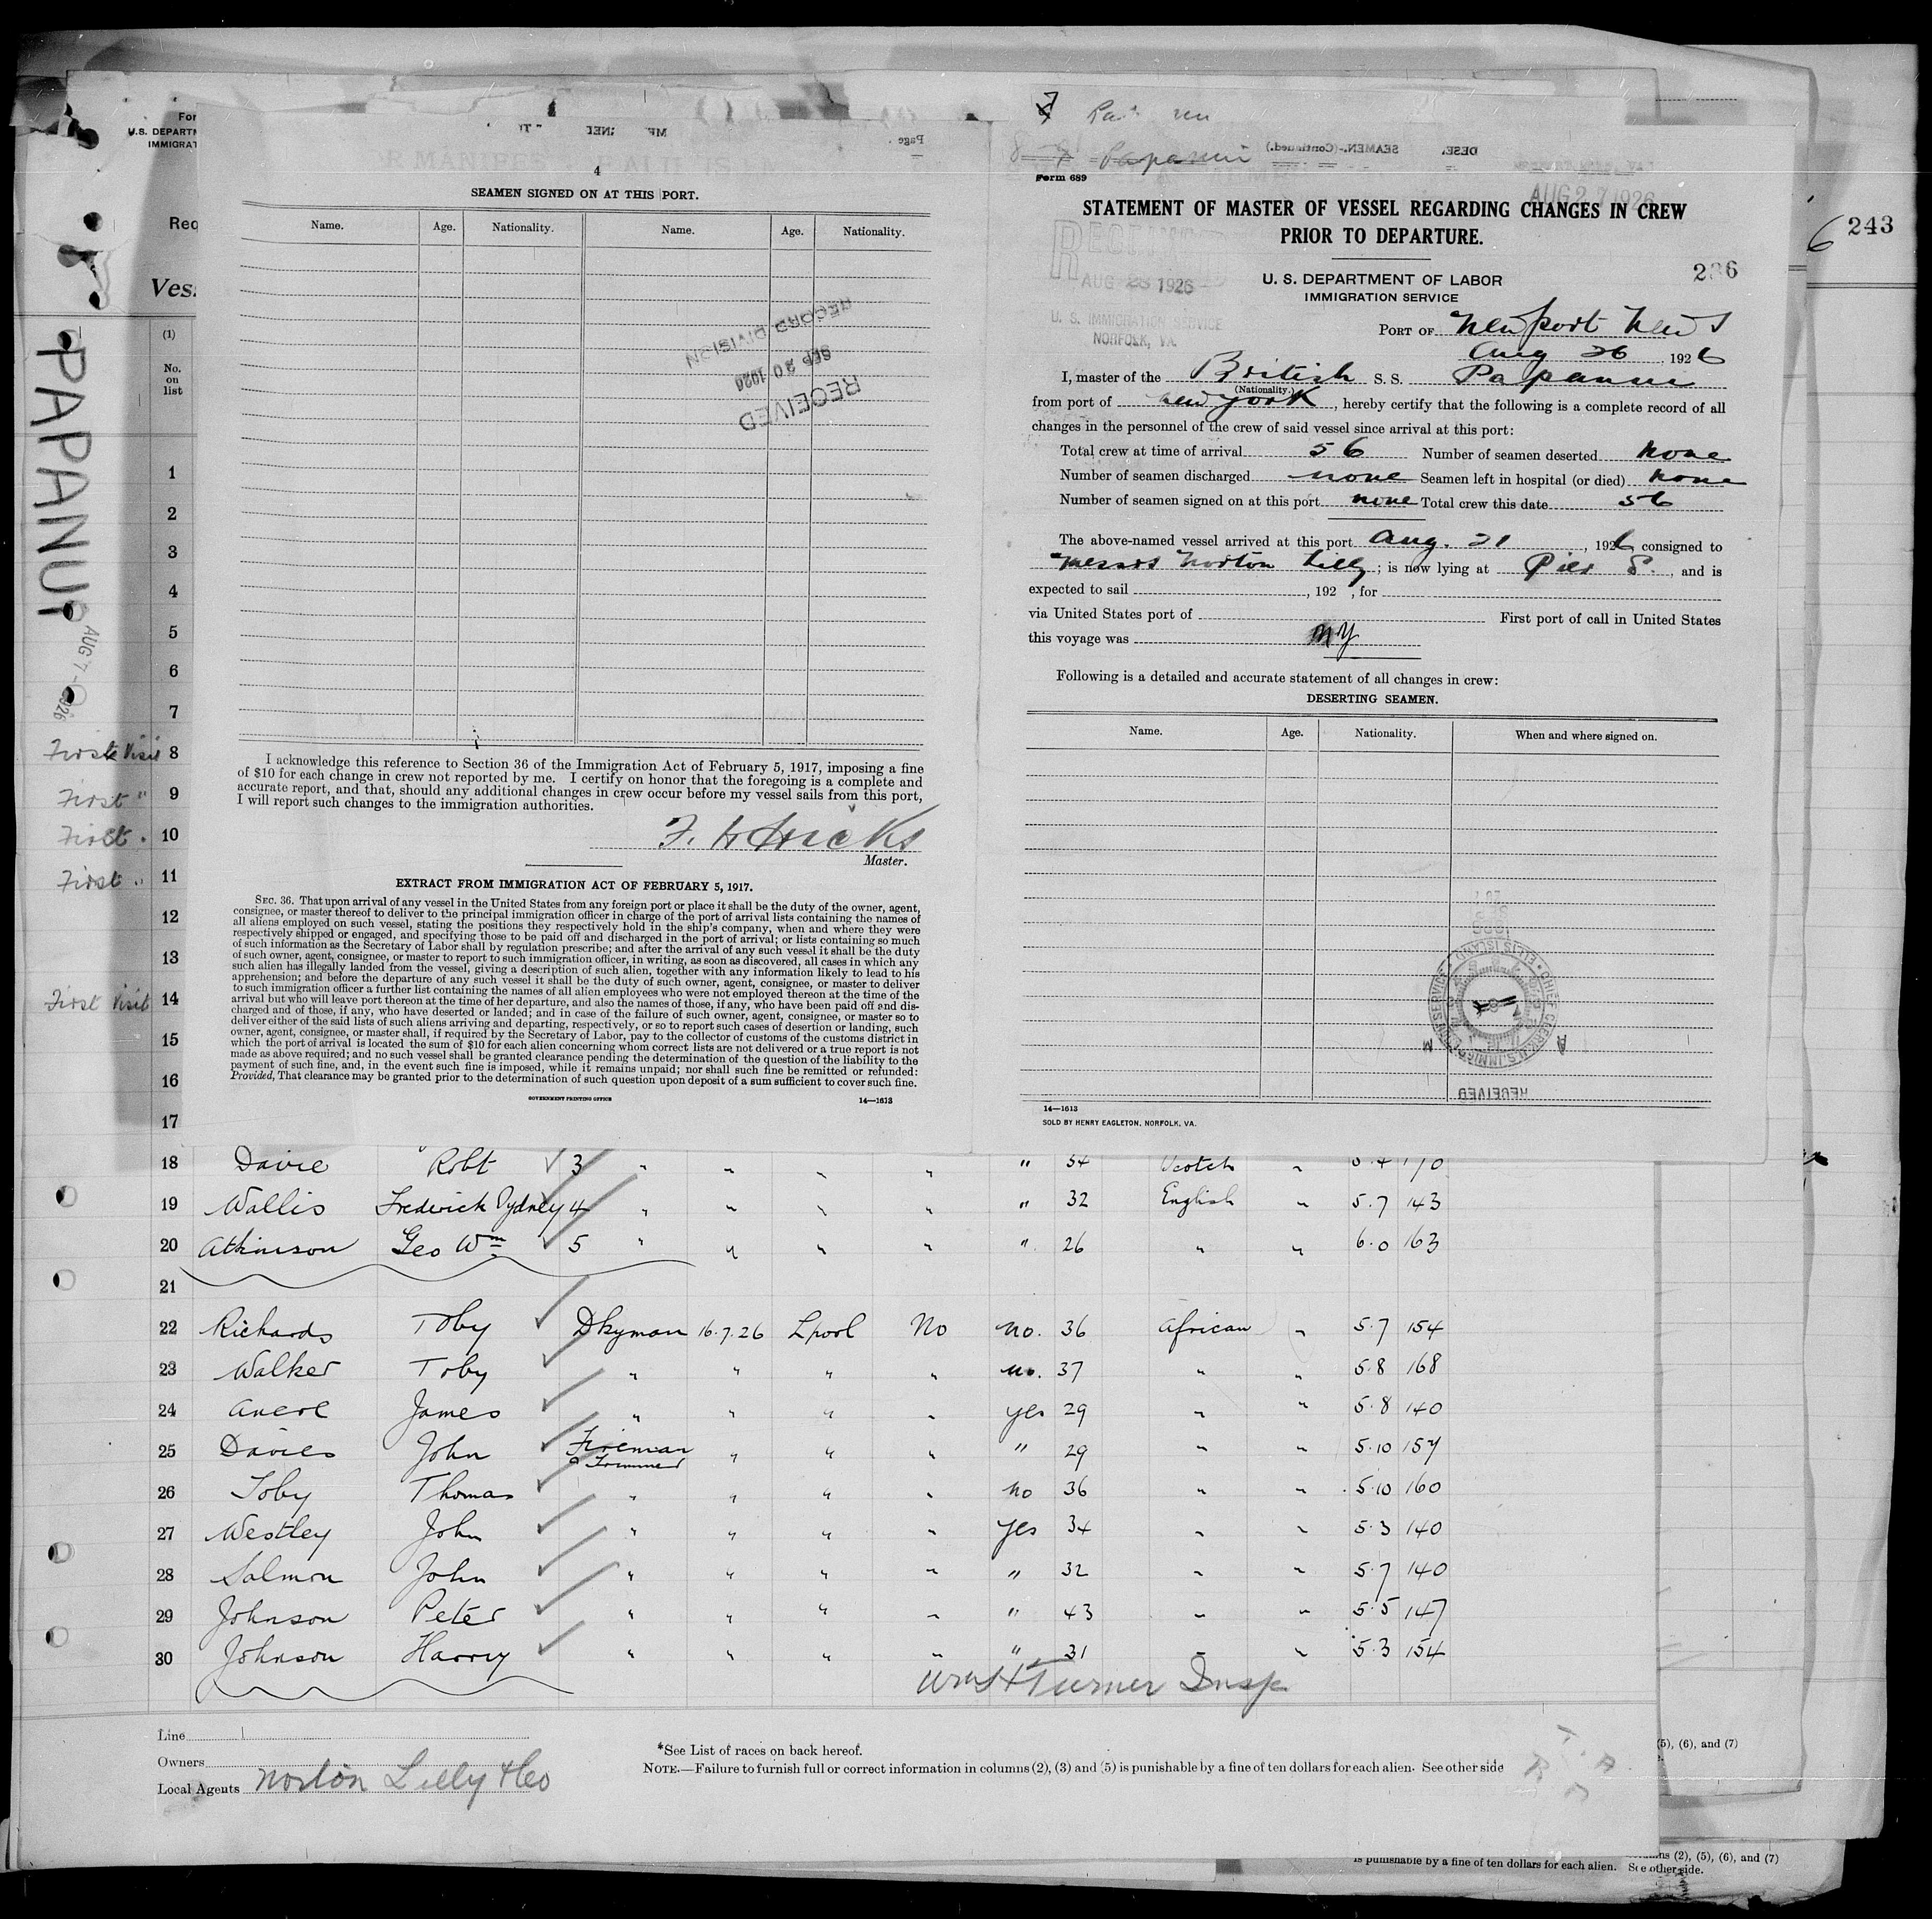 For
U.S. DEPARTM
IMMIGRAT
Req
Ves
(1)
No.
on
list
PAPANUI
AUG 7 - 1926
1
2
3
4
5
6
7
First Visit 8
First " 9
First " 10
First " 11
12
13
First Visit 14
15
16
17
4
SEAMEN SIGNED ON AT THIS PORT.
Name. Age. Nationality. Name. Age. Nationality.
RECORD DIVISION
SEP 20 1926
RECEIVED
I acknowledge this reference to Section 36 of the Immigration Act of February 5, 1917, imposing a fine
of $10 for each change in crew not reported by me. I certify on honor that the foregoing is a complete and
accurate report, and that, should any additional changes in crew occur before my vessel sails from this port,
I will report such changes to the immigration authorities.
Master.
EXTRACT FROM IMMIGRATION ACT OF FEBRUARY 5, 1917.
SEC. 36. That upon arrival of any vessel in the United States from any foreign port or place it shall be the duty of the owner, agent,
consignee, or master thereof to deliver to the principal immigration officer in charge of the port of arrival lists containing the names of
all aliens employed on such vessel, stating the positions they respectively hold in the ship's company, when and where they were
respectively shipped or engaged, and specifying those to be paid off and discharged in the port of arrival; or lists containing so much
of such information as the Secretary of Labor shall by regulation prescribe; and after the arrival of any such vessel it shall be the duty
of such owner, agent, consignee, or master to report to such immigration officer, in writing, as soon as discovered, all cases in which any
such alien has illegally landed from the vessel, giving a description of such alien, together with any information likely to lead to his
apprehension; and before the departure of any such vessel it shall be the duty of such owner, agent, consignee, or master to deliver
to such immigration officer a further list containing the names of all alien employees who were not employed thereon at the time of the
arrival but who will leave port thereon at the time of her departure, and also the names of those, if any, who have been paid off and dis-
charged and of those, if any, who have deserted or landed; and in case of the failure of such owner, agent, consignee, or master so to
deliver either of the said lists of such aliens arriving and departing, respectively, or so to report such cases of desertion or landing, such
owner, agent, consignee, or master shall, if required by the Secretary of Labor, pay to the collector of customs of the customs district in
which the port of arrival is located the sum of $10 for each alien concerning whom correct lists are not delivered or a true report is not
made as above required; and no such vessel shall be granted clearance pending the determination of the question of the liability to the
payment of such fine, and, in the event such fine is imposed, while it remains unpaid; nor shall such fine be remitted or refunded:
Provided, That clearance may be granted prior to the determination of such question upon deposit of a sum sufficient to cover such fine.
GOVERNMENT PRINTING OFFICE 14—1613
Papanui
Form 689
AUG 27 1926
STATEMENT OF MASTER OF VESSEL REGARDING CHANGES IN CREW
PRIOR TO DEPARTURE.
AUG 23 1926
U. S. IMMIGRATION SERVICE
NORFOLK, VA.
U. S. DEPARTMENT OF LABOR
IMMIGRATION SERVICE
236
243
PORT OF Newport News
Aug 26, 1926
I, master of the British S. S. Papanui
(Nationality.)
from port of New York, hereby certify that the following is a complete record of all
changes in the personnel of the crew of said vessel since arrival at this port:
Total crew at time of arrival 56 Number of seamen deserted none
Number of seamen discharged none Seamen left in hospital (or died) none
Number of seamen signed on at this port none Total crew this date 56
The above-named vessel arrived at this port Aug. 21, 1926 consigned to
Messrs Norton Lilly; is now lying at Pier 8., and is
expected to sail , 192 , for
via United States port of First port of call in United States
this voyage was NY
Following is a detailed and accurate statement of all changes in crew:
DESERTING SEAMEN.
Name. Age. Nationality. When and where signed on.
RECEIVED
14—1613
SOLD BY HENRY EAGLETON, NORFOLK, VA.
18 Davie Robt 3 " " " " " 54 Scotch " 5.4 170
19 Wallis Frederick Sydney 4 " " " " " 32 English " 5.7 143
20 Atkinson Geo Wm 5 " " " " " 26 " " 6.0 163
21
22 Richards Toby Dkyman 16.7.26 Lpool No no. 36 African " 5.7 154
23 Walker Toby " " " " no. 37 " " 5.8 168
24 James " " " " yes 29 " " 5.8 140
25 Davies John Fireman & Trimmer " " " " 29 " " 5.10 157
26 Toby Thomas " " " " no 36 " " 5.10 160
27 Westley John " " " " yes 34 " " 5.3 140
28 Salmon John " " " " " 32 " " 5.7 140
29 Johnson Peter " " " " " 43 " " 5.5 147
30 Johnson Harry " " " " " 31 " " 5.3 154
Wm H Turner Insp
Line
Owners
Local Agents Norton Lilly & Co
*See List of races on back hereof.
NOTE.—Failure to furnish full or correct information in columns (2), (3) and (5) is punishable by a fine of ten dollars for each alien. See other side
(5), (6), and (7)
is punishable by a fine of ten dollars for each alien. See other side.
(2), (5), (6), and (7)